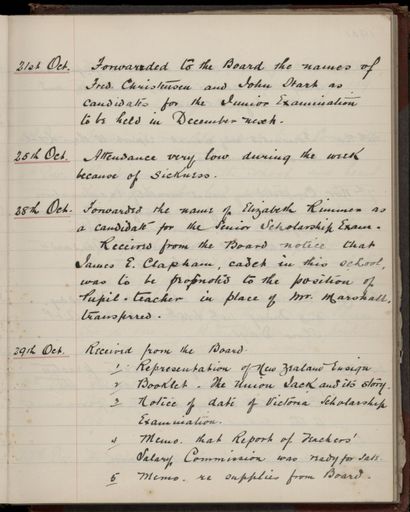 21st Oct. Forwarded to the Board the names of
Fred Christensen and John Stark as
candidates for the Junior Examination
to be held in December next.
25th Oct. Attendance very low during the week
because of Sickness.
28th Oct. Forwarded the name of Elizabeth Rimmer as
a candidate for the Senior Scholarship Exam.
Received from the Board notice that
James E. Clapham, cadet in this school,
was to be promoted to the position of
Pupil-teacher in place of Mr. Marshall,
transferred.
29th Oct. Received from the Board.
1 Representation of New Zealand Ensign
2 Booklet - The Union Jack and its story.
3 Notice of date of Victoria Scholarship
Examination.
4 Memo. that Report of Teachers'
Salary Commission was ready for sale
5 Memo. re supplies from Board.